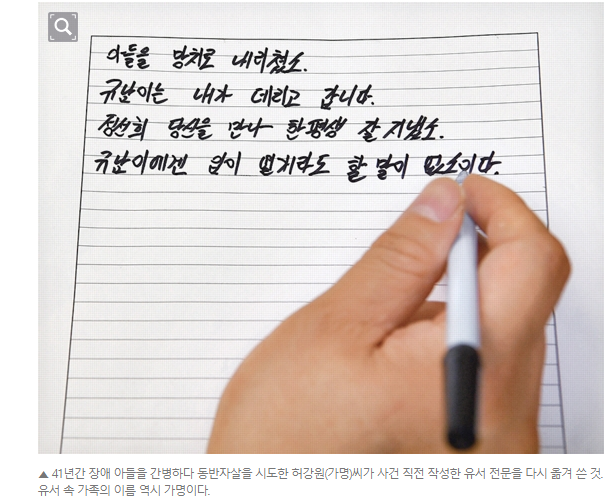 아들을 망치로 내리쳤소.
규난이는 내가 데리고 갑니다.
정선희 당신을 만나 한평생 잘 지냈소.
규난이에겐 입이 열개라도 할 말이 없소이다.
▲ 41년간 장애 아들을 간병하다 동반자살을 시도한 허강원(가명)씨가 사건 직전 작성한 유서 전문을 다시 옮겨 쓴 것.
유서 속 가족의 이름 역시 가명이다.